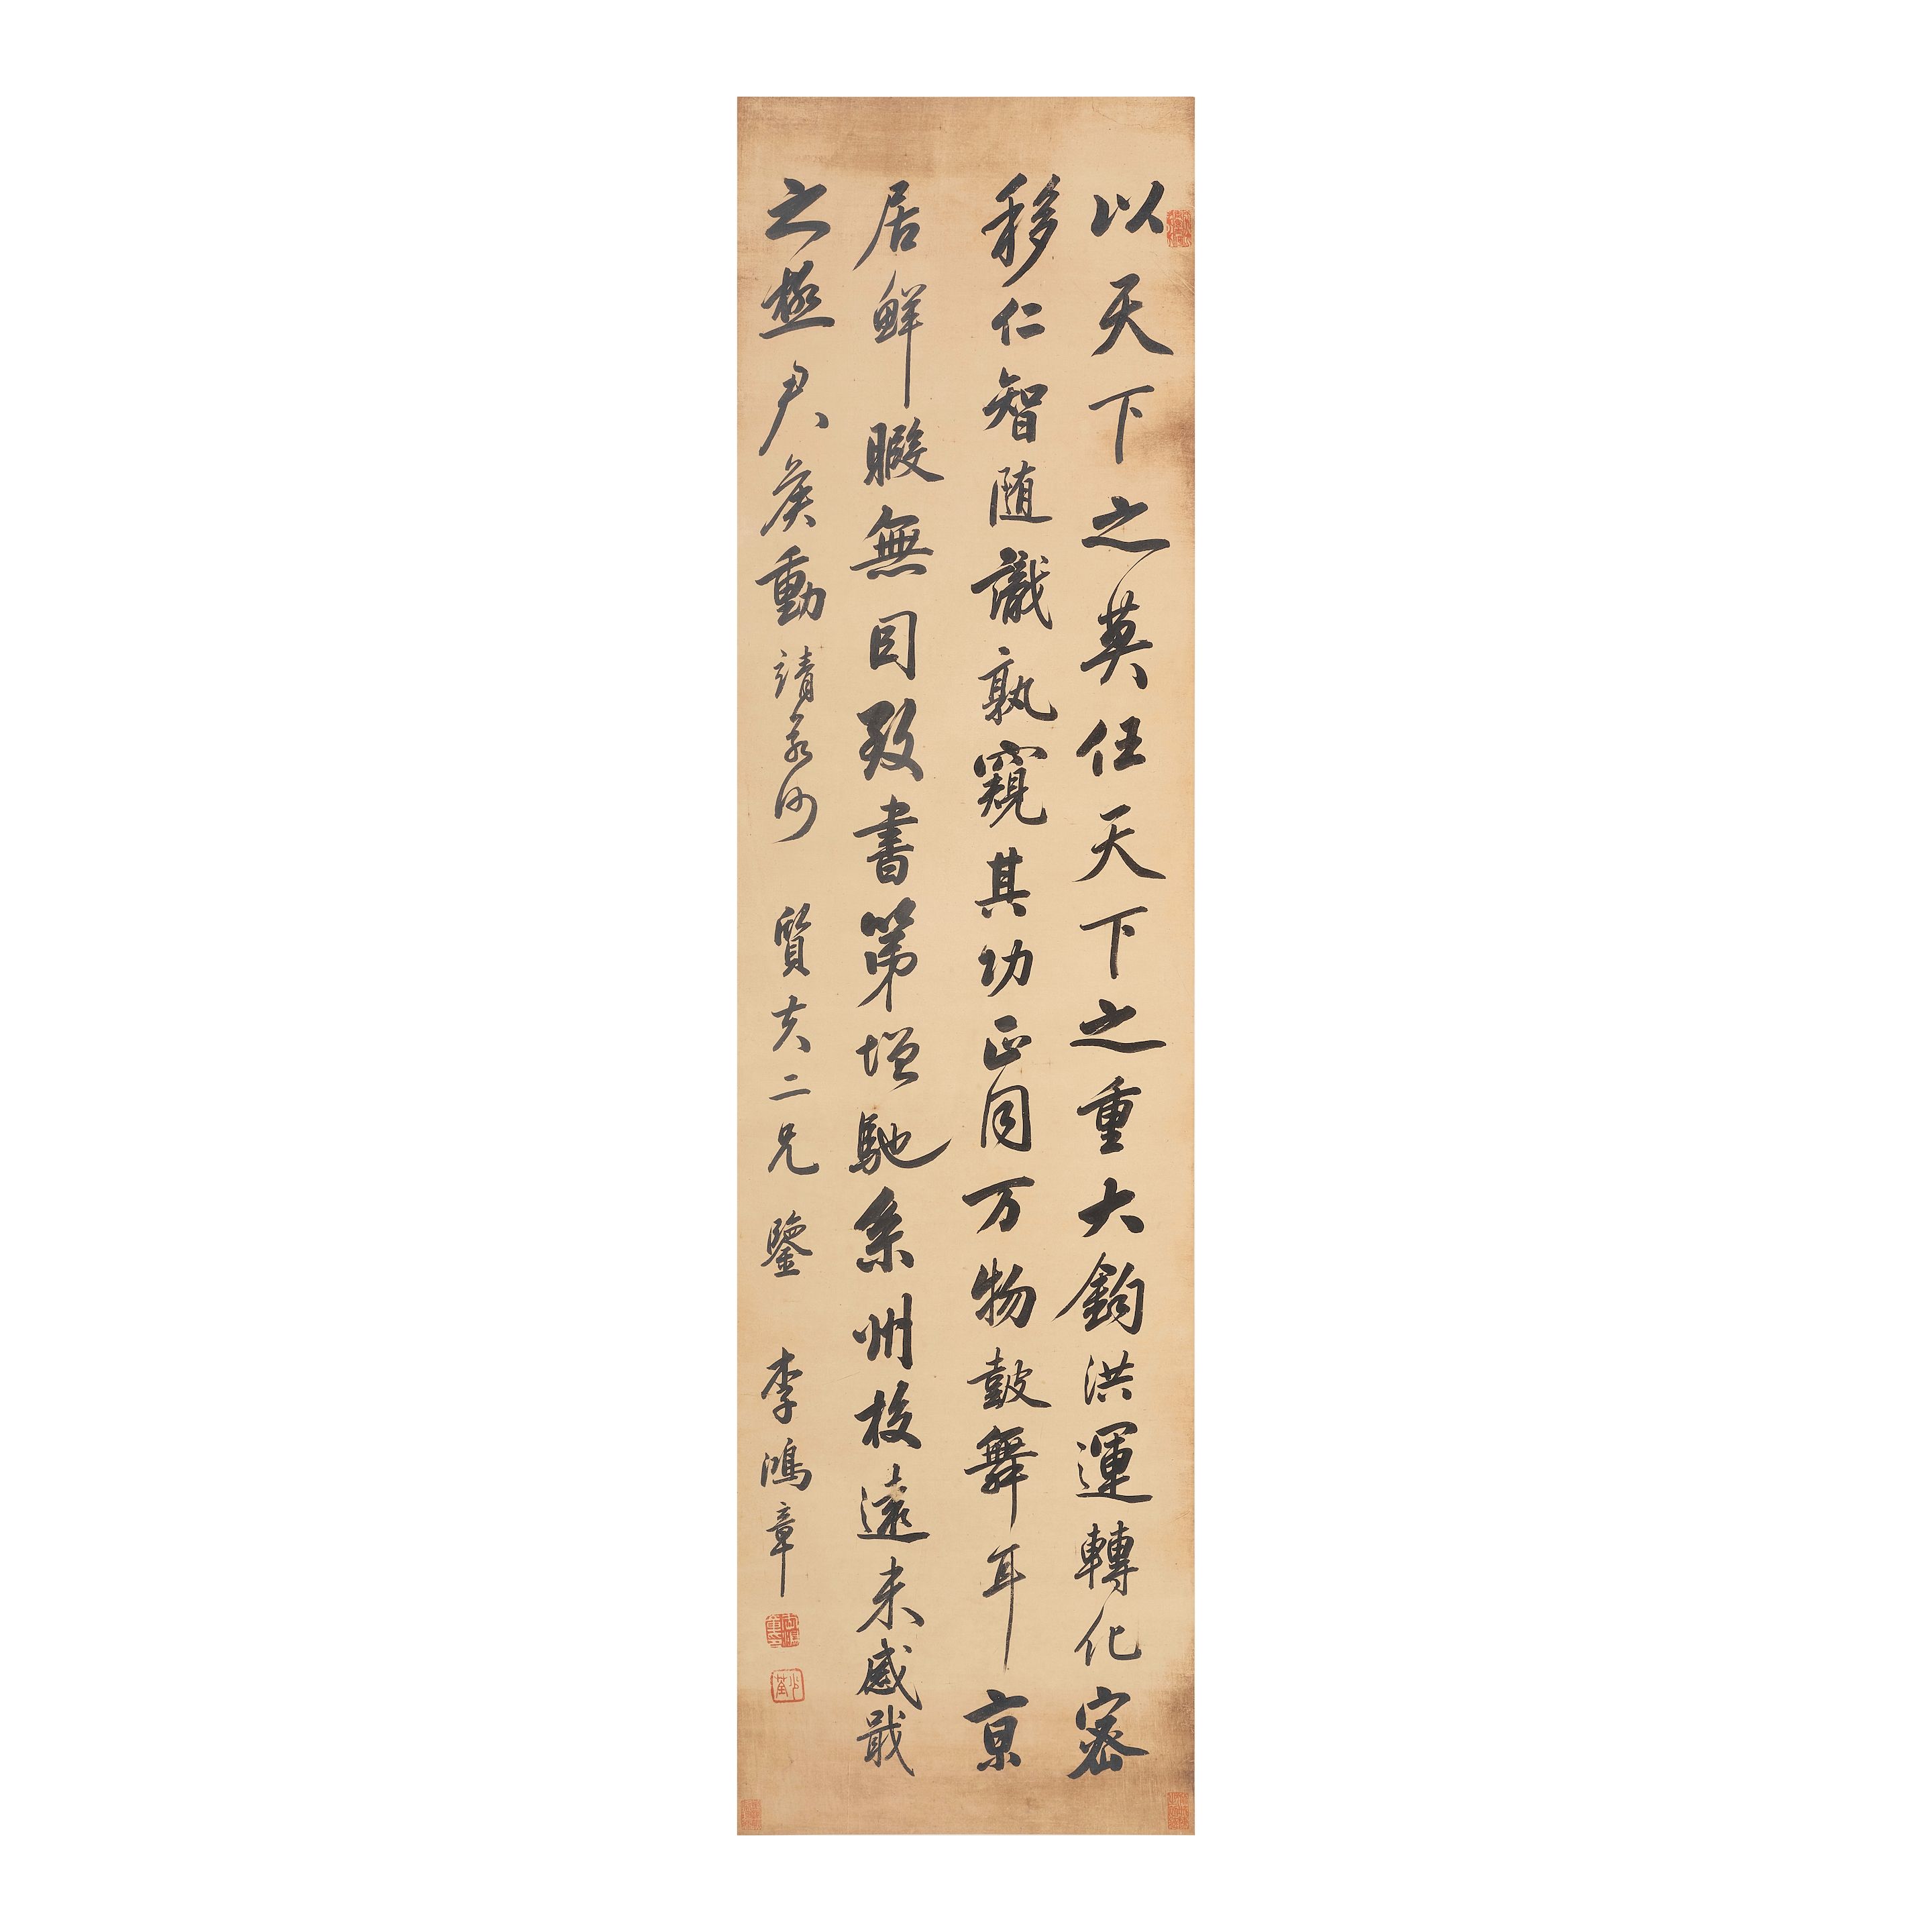 以天下之英任天下之重大鈞洪運轉化密
移仁智随識孰窺其功正同万物鼓舞耳京
居鮮暇無因致書第增馳系州校遠来感戢
之極尹矦動靖
質夫二兄鑒李鴻章